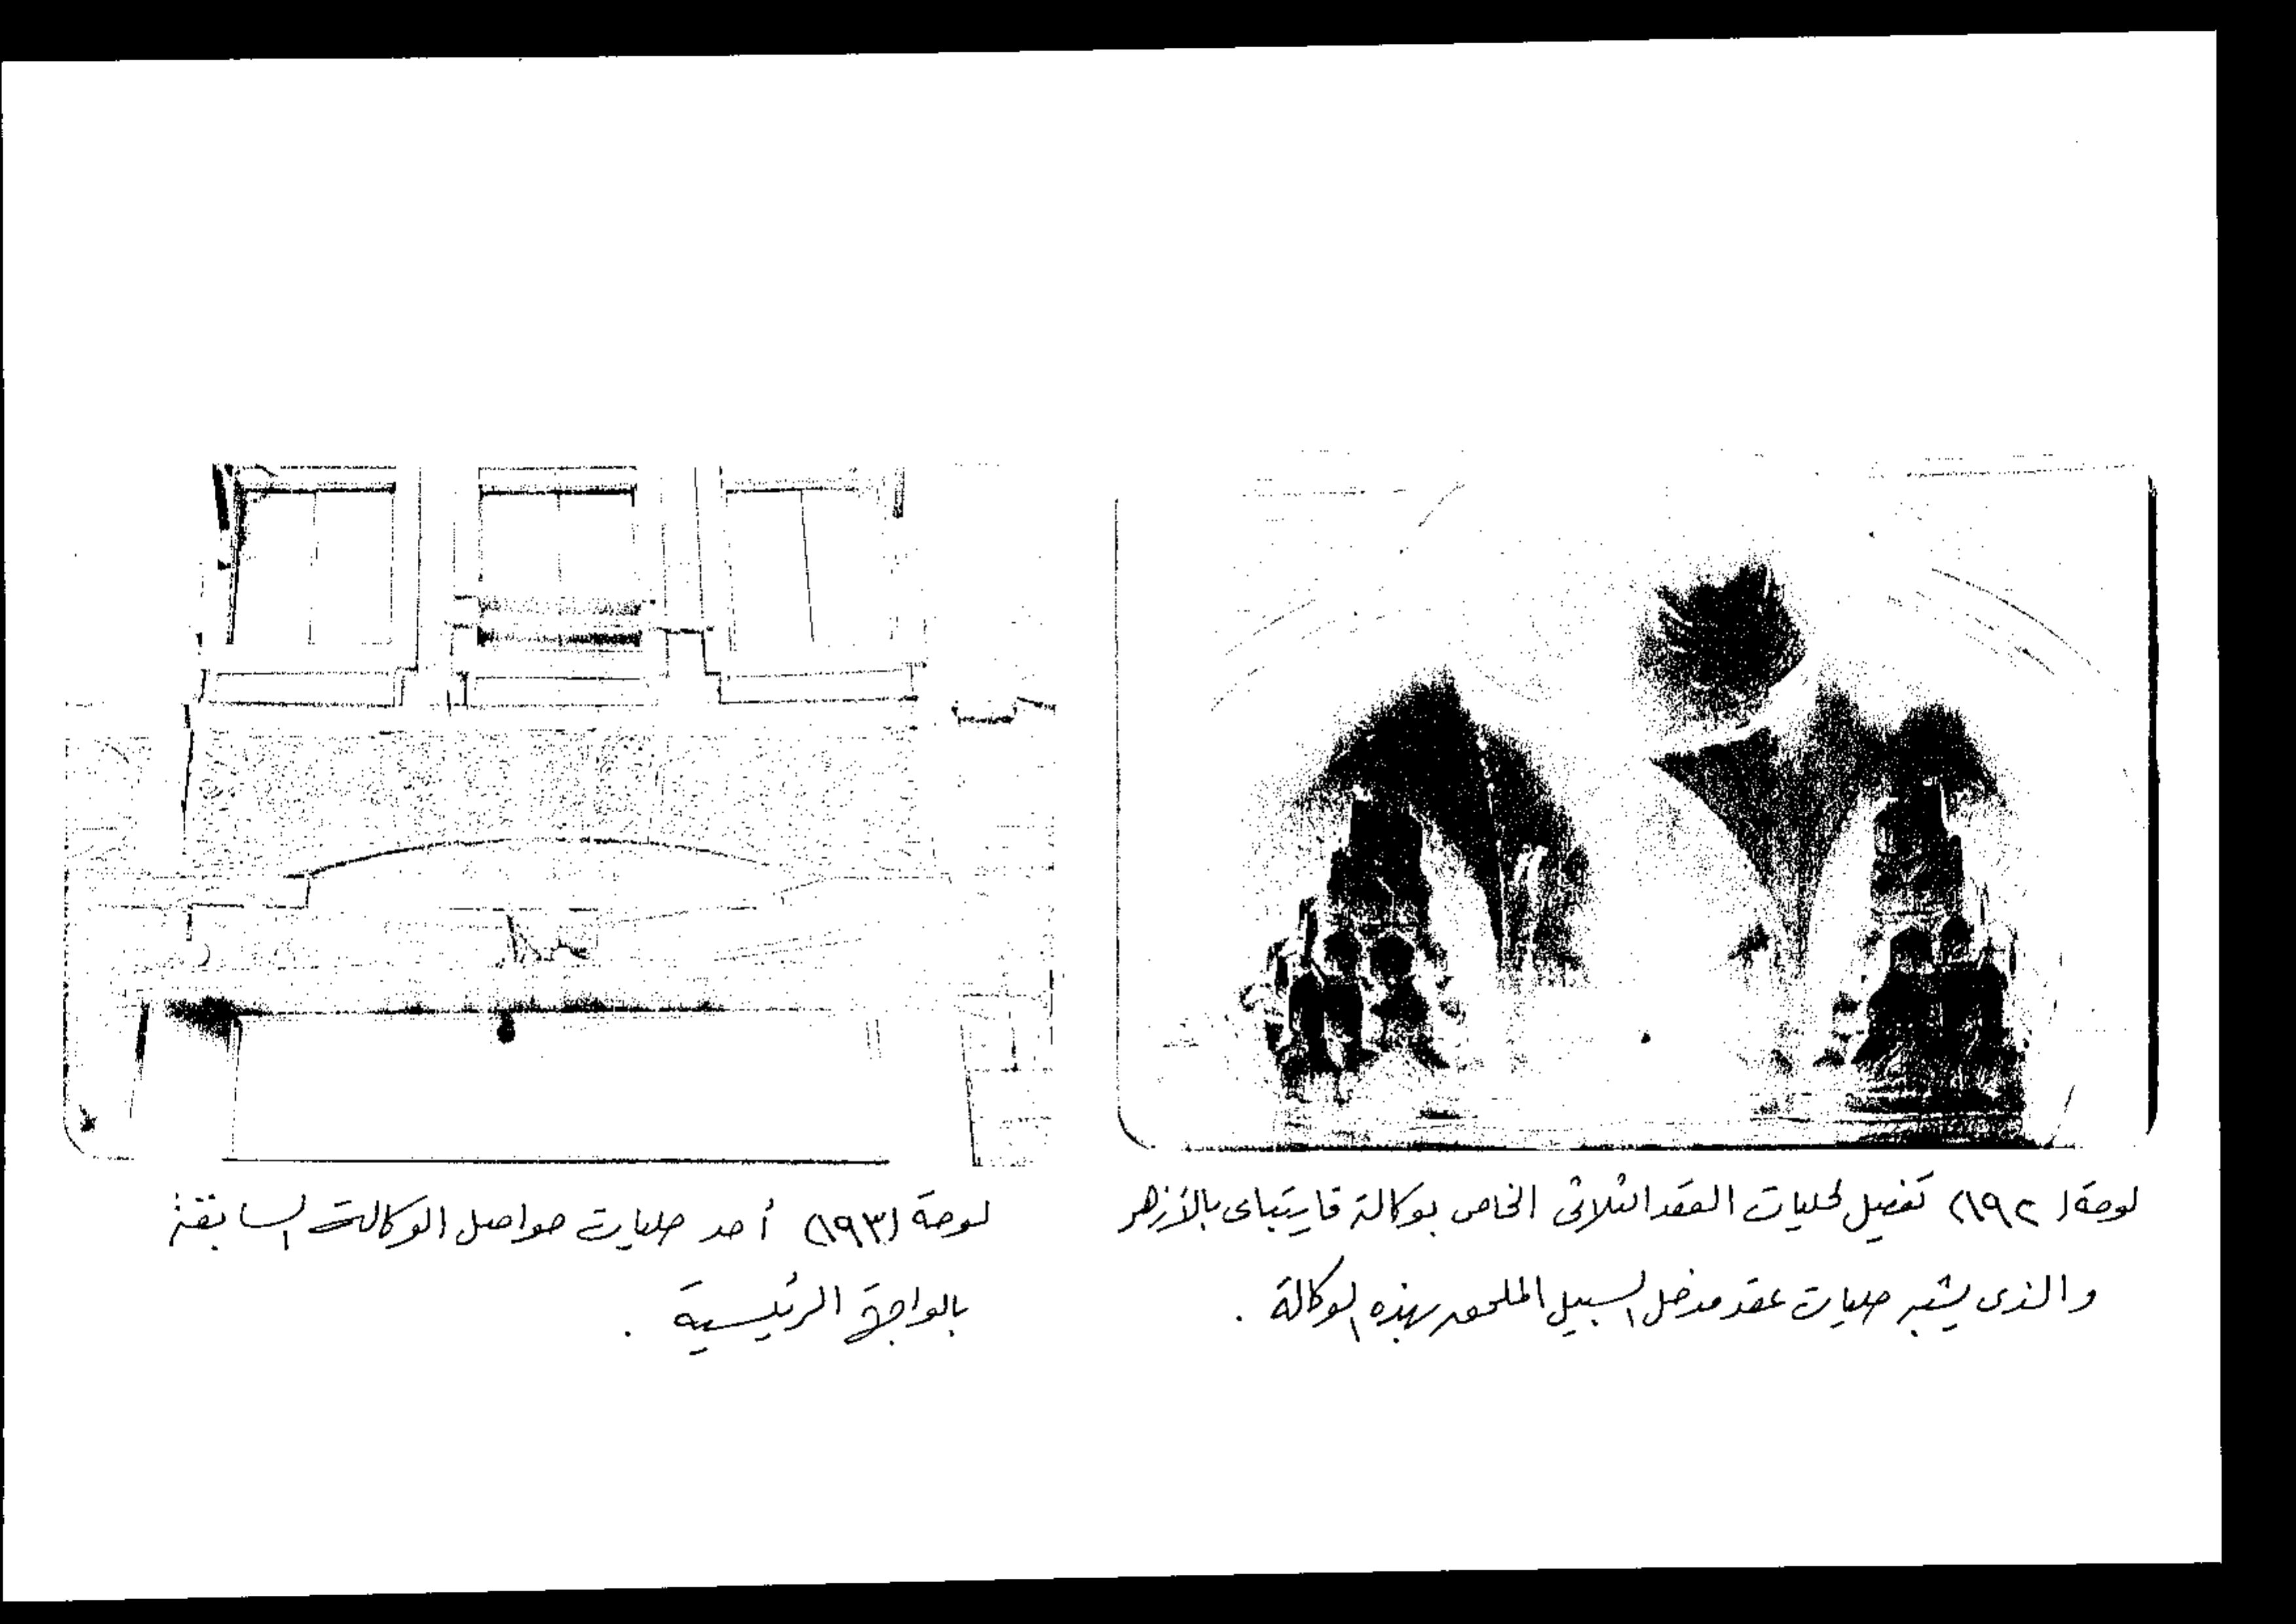 لوحة (١٩٢) تفصيل لحليات العقد الثلاثى الخاص بوكالة قايتباى بالأزهر
والذى يشبه حليات عقد مدخل السبيل الملحق بهذه الوكالة .
لوحة (١٩٣) أحد حليات حواصل الوكالة السابقة
بالواجهة الرئيسية .